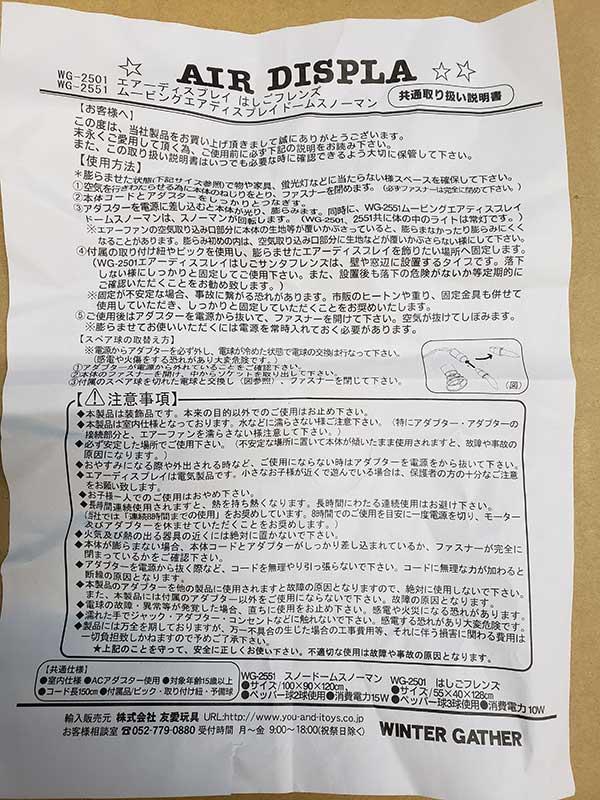 ☆ AIR DISPLA ☆☆
WG-2501 エアーディスプレイ はしごフレンズ
WG-2551 ムービングエアディスプレイドームスノーマン
共通取り扱い説明書
【お客様へ】
この度は、当社製品をお買い上げ頂きまして誠にありがとうございます。
末永くご愛用して頂く為、ご使用前に必ず下記の説明をお読み下さい。
また、この取り扱い説明書はいつでも必要な時に確認できるよう大切に保管して下さい。
【使用方法】
*膨らませた状態(下記サイズ参照)で物や家具、蛍光灯などに当たらない様スペースを確保して下さい。
①空気を行きわたらせる為に本体のねじりをとり、ファスナーを閉めます。(必ずファスナーは完全に閉めて下さい。)
②本体コードとアダプターをしっかりとつなぎます。
③アダプターを電源に差し込むと本体が光り、膨らみます。同時に、WG-2551ムービングエアディスプレイ
ドームスノーマンは、スノーマンが回転します。(WG-2501、2551共に体の中のライトは常灯です。)
※エアーファンの空気取り込み口部分に本体の生地等が覆いかぶさっていると、膨らまなかったり膨らみにくく
なることがあります。膨らみ初めの内は、空気取り込み口部分に生地などが覆いかぶさらない様にして下さい。
④付属の取り付け紐やピックを使用し、膨らませたエアーディスプレイを飾りたい場所へ固定します。
(WG-2501エアーディスプレイはしごサンタフレンズは、壁や窓辺に設置するタイプです。落下
しない様にしっかりと固定してご使用下さい。また、設置後も落下の危険がないか等定期的に
ご確認いただくことをお勧め致します。)
※固定が不安定な場合、事故に繋がる恐れがあります。市販のヒートンや重り、固定金具も併せて
使用していただき、しっかりと固定していただくことをお奨めいたします。
⑤ご使用後はアダプターを電源から抜いて、ファスナーを開けて下さい。空気が抜けてしぼみます。
※膨らませてお使いいただくには電源を常時入れておく必要があります。
【スペア球の取替え方】
※電源からアダプターを必ず外し、電球が冷めた状態で電球の交換は行なって下さい。
(感電や火傷をする恐れがあり大変危険です。)
①アダプターが電源から外れていることをご確認下さい。
②本体のファスナーを開け、中からソケットを取り出して下さい。
③付属のスペア球を切れた電球と交換し(図参照)、ファスナーを閉じて下さい。
(図)
【⚠注意事項】
◆本製品は装飾品です。本来の目的以外でのご使用はお止め下さい。
◆本製品は室内仕様となっております。水などに濡らさない様ご注意下さい。(特にアダプター・アダプターの
接続部分と、エアーファンを濡らさない様注意して下さい。)
◆必ず安定した場所でご使用下さい。(不安定な場所に置いて本体が傾いたまま使用されますと、故障や事故の
原因になります。)
◆おやすみになる際や外出される時など、ご使用にならない時はアダプターを電源をから抜いて下さい。
◆エアーディスプレイは電気製品です。小さなお子様が近くで遊んでいる場合は、保護者の方の十分なご注意
をお願い致します。
◆お子様一人でのご使用はおやめ下さい。
◆長時間連続使用されますと、熱を持ち熱くなります。長時間にわたる連続使用はお避け下さい。
(当社では「連続8時間までの使用」をお奨めしています。8時間でのご使用を目安に一度電源を切り、モーター
及びアダプタを休ませていただくことをお奨めします。)
◆火気及び熱の出る器具の近くには絶対に置かないで下さい。
◆本体が膨らまない場合、本体コードとアダプターがしっかり差し込まれているか、ファスナーが完全に
閉まっているかをご確認下さい。
◆アダプターを電源から抜く際など、コードを無理やり引っ張らないで下さい。コードに無理な力が加わると
断線の原因となります。
◆本製品のアダプターを他の製品に使用されますと故障の原因となりますので、絶対に使用しないで下さい。
また、本製品には付属のアダプター以外をご使用にならないで下さい。故障の原因となります。
◆電球の故障・異常等が発覚した場合、直ちに使用をお止め下さい。感電や火災になる恐れがあります。
◆濡れた手でジャック・アダプター・コンセントなどに触れないで下さい。感電する恐れがあり大変危険です。
◆製品には万全を期しておりますが、万一不具合の生じた場合の工事費用等、それに伴う損害に関わる費用は
一切負担致しかねますので予めご了承下さい。
★上記のことを守って、安全に正しくお使い下さい。不適切な使用は故障や事故の原因となります。
【共通仕様】
●室内仕様 ●ACアダプター使用 ●対象年齢15歳以上
●コード長150cm ●付属品/ピック・取り付け紐・予備球
WG-2551 スノードームスノーマン
●サイズ/100×90×120cm
●ペッパー球2球使用 ●消費電力15W
WG-2501 はしごフレンズ
●サイズ/55×40×128cm
●ペッパー球3球使用 ●消費電力10W
輸入販売元 株式会社 友愛玩具 URL:http://www.you-and-itoys.co.jp
お客様相談室 ☎052-779-0880 受付時間 月〜金 9:00〜18:00(祝祭日除く)
WINTER GATHER